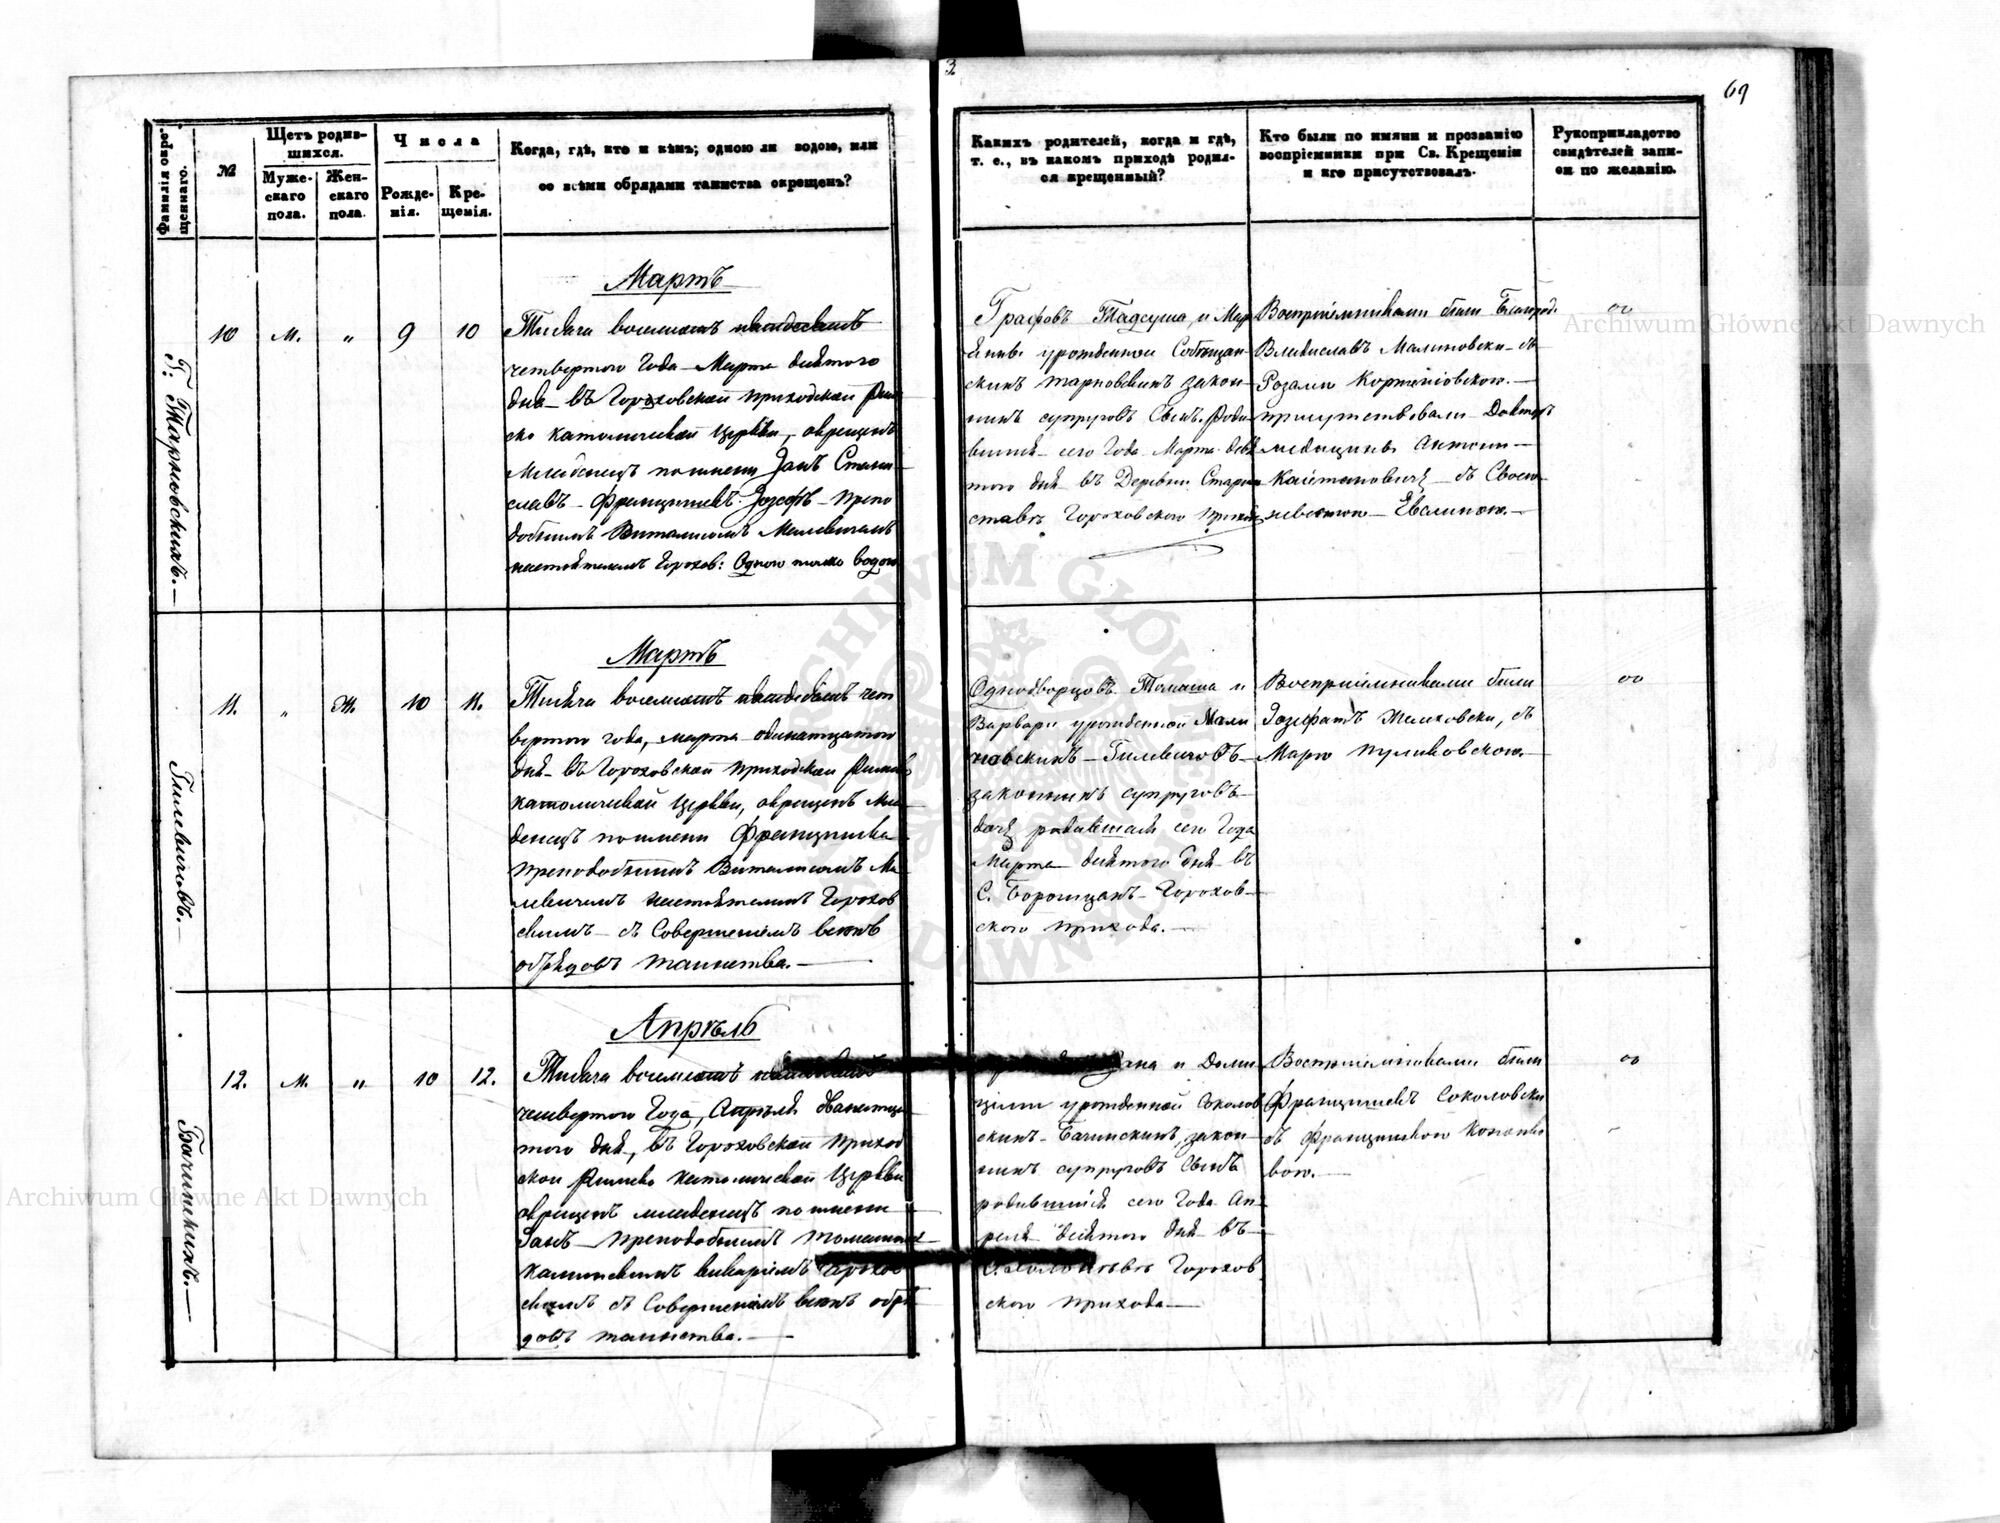 3
69
Фамилія окре-
щеннаго.
№
Щетъ родив-
шихся.
Муже-
скаго
пола.
Жен-
скаго
пола.
Числа
Рожде-
нія.
Кре-
щенія.
Когда, гдѣ, кто и кѣмъ; одною ли водою, или
со всѣми обрядами таинства окрещенъ?
Какихъ родителей, когда и гдѣ,
т. е., въ какомъ приходѣ родил-
ся крещенный?
Кто были по имяни и прозванію
воспріемники при Св. Крещеніи
и кто присутствовалъ.
Рукоприкладство
свидѣтелей запи-
си по желанію.
Г: Тарновскихъ.—
10
М.
"
9
10
Мартъ
Тысяча восемьсотъ
четвертого Года Марта
дня въ Гороховской приходской Рим
ско католической Церкви, окрещенъ
Младенецъ по имени Іанъ Стани
славъ Францишекъ Іозефъ — препо
добнымъ Виталисомъ Малевичемъ
настоятелемъ Горохов: Одною только водою
Графовъ Тадеуша и Мар
урожденной
скихъ Тарновскихъ закон
ныхъ супруговъ Сынъ роди
вшійся сего Года Марта девя
того дня въ Деревни Старико
ставѣ Гороховского прихода
Воспріемниками были Благород.
Владиславъ Малиновски съ
Розалію Корженіовскою.—
присутствовали Докторъ
медицины Антони
Каетановичъ съ Своею
невѣсткою Евелиною.—
Гилевичовъ.—
11.
"
Ж.
10
11.
Мартъ
Тысяча восемьсотъ чет
вертого года, марта одинатцатого
дня въ Гороховской приходской Римско
католической Церкви, окрещенъ Мла
денецъ по имени Францишка
преподобнымъ Виталисомъ Ма
левичемъ настоятелемъ Горохов
скимъ съ Совершеніемъ всѣхъ
обрядовъ таинства.—
Однодворцовъ Томаша и
Варвары урожденной Мали
новскихъ Гилевичовъ
законныхъ супруговъ
дочь родившаяся сего Года
Марта десятого дня въ
С. Борочицахъ Горохов-
ского прихода.—
Воспріемниками были
Іозефатъ Желиховски, съ
Марію Куликовскою.—
Бачинскихъ.—
12.
М.
"
10
12.
Апрѣль
Тысяча восемьсотъ
четвертого Года, Апрѣля дванатца
того дня, въ Гороховской приход
ской Римско католической Церкви
окрещенъ младенецъ по имени
Іанъ преподобнымъ Томашомъ
Калиневскимъ викаріемъ Горохов
скимъ съ Совершеніемъ всѣхъ обря
довъ таинства.—
Іана и Доми
цели урожденной Соколов
скихъ Бачинскихъ, закон
ныхъ супруговъ Сынъ
родившійся сего Года Ап
рѣля десятого дня въ
С. Горохов
ского прихода
Воспріемниками были
Францишекъ Соколовски
съ Францишкою
вою.—
Archiwum Główne Akt Dawnych
Archiwum Główne Akt Dawnych
ARCHIWUM GŁÓWNE AKT DAWNYCH